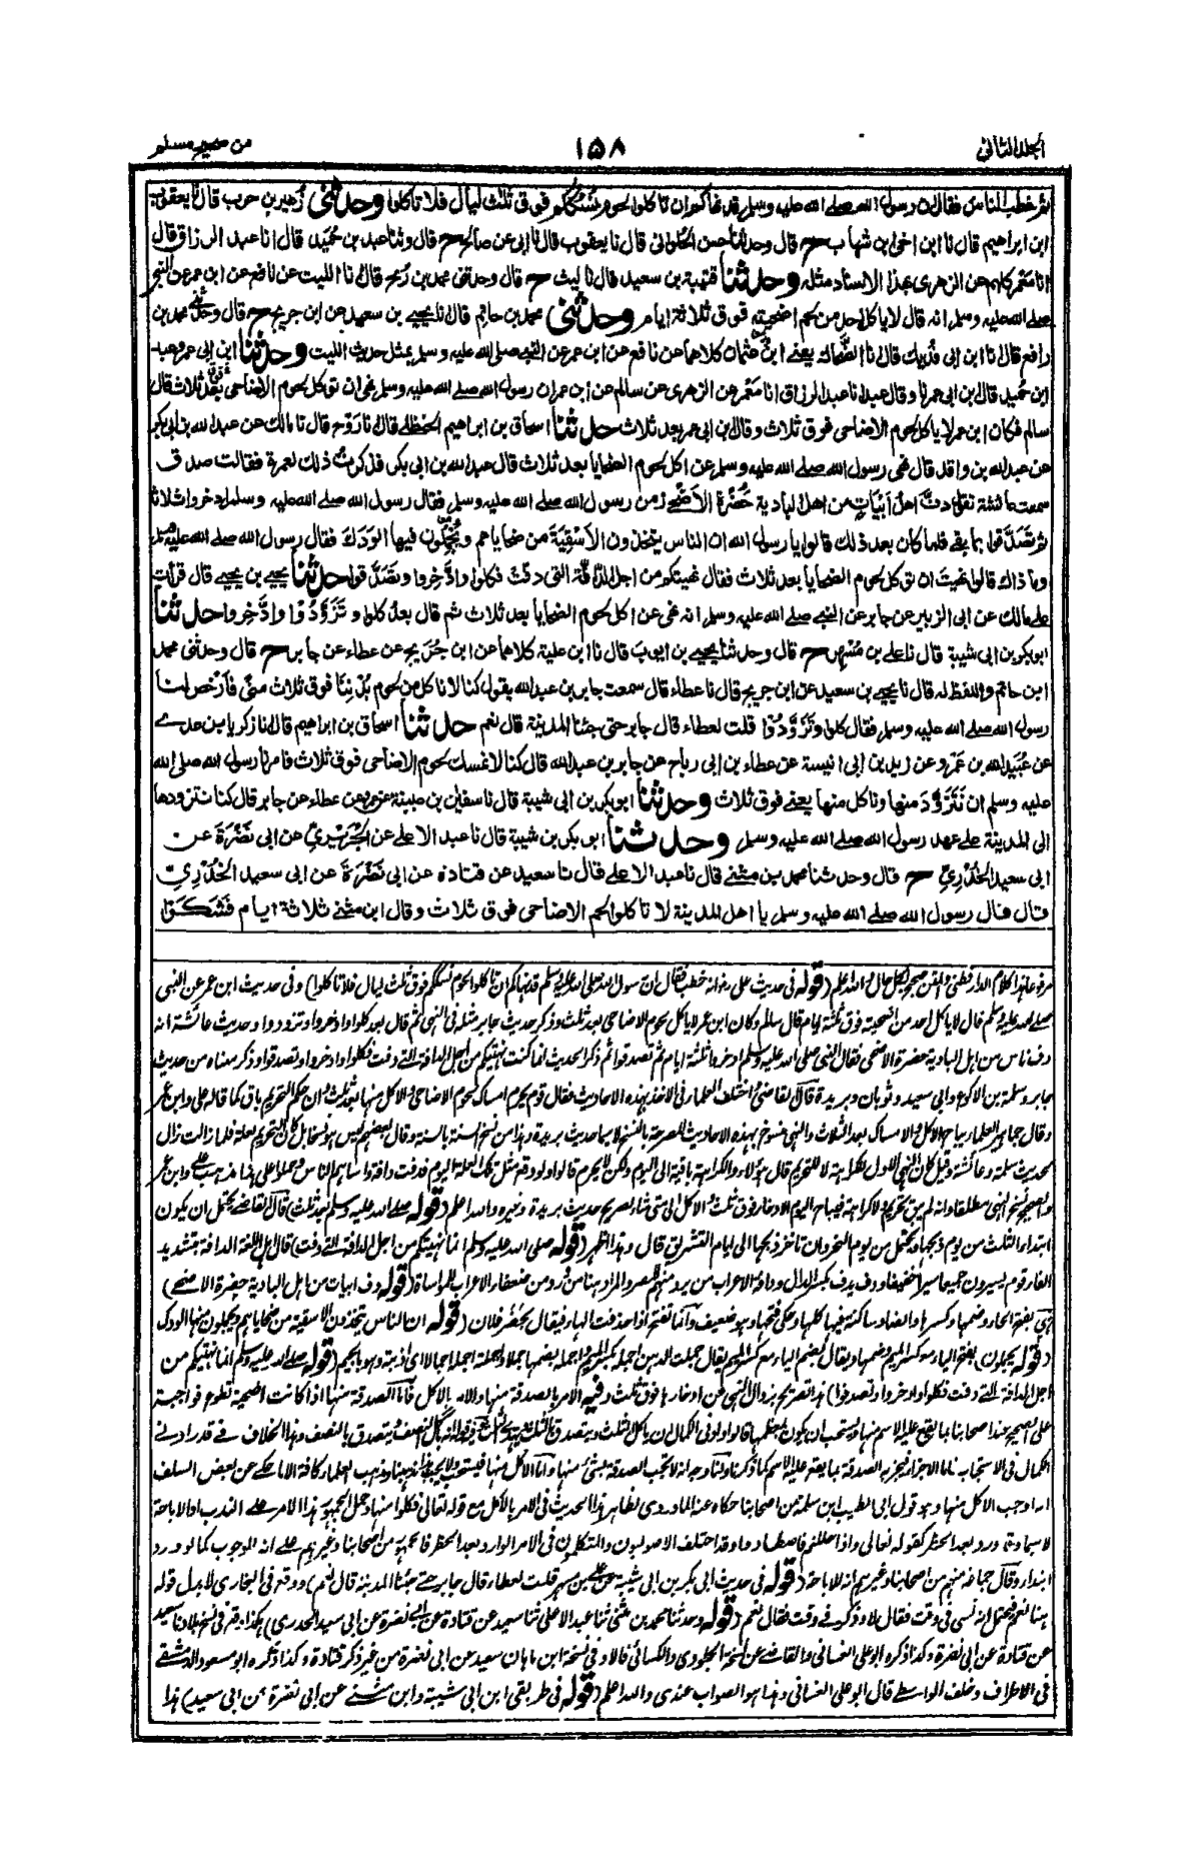 المجلد الثاني ١٥٨ من صحيح مسلم
ثم خطب الناس فقال ان رسول الله صلے الله عليه وسلم قد نهاكم ان تاكلوا لحوم نسككم فوق ثلث ليال فلا تاكلوا وحدثنی زهير بن حرب قال نا يعقوب
ابن ابراهيم قال نا ابن اخی ابن شهاب ح قال وحدثنا حسن الحلوانی قال نا يعقوب قال نا ابی عن صالح ح قال وثنا عبد بن حميد قال انا عبد الرزاق قال
انا معمر كلهم عن الزهری بهذا الاسناد مثله وحدثنا قتيبة بن سعيد قال نا ليث ح قال وحدثنی محمد بن رمح قال نا الليث عن نافع عن ابن عمر عن النبی
صلے الله عليه وسلم انه قال لا ياكل احد من لحم اضحيته فوق ثلاثة ايام وحدثنی محمد بن حاتم قال نا يحيے بن سعيد عن ابن جريج ح قال وحدثنی محمد بن
رافع قال نا ابن ابی فديك قال نا الضحاك يعنے ابن عثمان كلاهما عن نافع عن ابن عمر عن النبی صلے الله عليه وسلم بمثل حديث الليث وحدثنا ابن ابی عمر وعبد
ابن حميد قال ابن ابی عمر نا وقال عبد انا عبد الرزاق انا معمر عن الزهری عن سالم عن ابن عمر ان رسول الله صلے الله عليه وسلم نهی ان تؤكل لحوم الاضاحی بعد ثلاث قال
سالم فكان ابن عمر لا ياكل لحوم الاضاحی فوق ثلاث وقال ابن ابی عمر بعد ثلاث حدثنا اسحاق بن ابراهيم الحنظلے قال انا روح قال نا مالك عن عبد الله بن ابی بكر
عن عبد الله بن واقد قال نهی رسول الله صلے الله عليه وسلم عن اكل لحوم الضحايا بعد ثلاث قال عبد الله بن ابی بكر فذكرت ذلك لعمرة فقالت صدق
سمعت عائشة تقول دف اهل ابيات من اهل البادية حضرة الاضحے زمن رسول الله صلے الله عليه وسلم فقال رسول الله صلے الله عليه وسلم ادخروا ثلاثا
ثم تصدقوا بما بقی فلما كان بعد ذلك قالوا يا رسول الله ان الناس يتخذون الاسقية من ضحاياهم ويجملون فيها الودك فقال رسول الله صلے الله عليه وسلم
وما ذاك قالوا نهيت ان تؤكل لحوم الضحايا بعد ثلاث فقال نهيتكم من اجل الدافة التی دفت فكلوا وادخروا وتصدقوا حدثنا يحيے بن يحيے قال قرأت
علی مالك عن ابی الزبير عن جابر عن النبے صلے الله عليه وسلم انه نهی عن اكل لحوم الضحايا بعد ثلاث ثم قال بعد كلوا وتزودوا وادخروا حدثنا
ابو بكر بن ابی شيبة قال نا علی بن مسهر ح قال وحدثنا يحيے بن ايوب قال نا ابن علية كلاهما عن ابن جريج عن عطاء عن جابر ح قال وحدثنی محمد
ابن حاتم واللفظ له قال نا يحيے بن سعيد عن ابن جريج قال نا عطاء قال سمعت جابر بن عبد الله يقول كنا لا ناكل من لحوم بدننا فوق ثلاث منی فأرخص لنا
رسول الله صلے الله عليه وسلم فقال كلوا وتزودوا قلت لعطاء قال جابر حتی جئنا المدينة قال نعم حدثنا اسحاق بن ابراهيم قال انا زكريا بن عدے
عن عبيد الله بن عمرو عن زيد بن ابی انيسة عن عطاء بن ابی رباح عن جابر بن عبد الله قال كنا لا نمسك لحوم الاضاحی فوق ثلاث فامرنا رسول الله صلی الله
عليه وسلم ان نتزود منها وناكل منها يعنے فوق ثلاث وحدثنا ابو بكر بن ابی شيبة قال نا سفين بن عيينة عن عمرو عن عطاء عن جابر قال كنا نتزودها
الی المدينة علے عهد رسول الله صلے الله عليه وسلم وحدثنا ابو بكر بن شيبة قال نا عبد الاعلے عن الجريری عن ابی نضرة عن
ابی سعيد الخدری ح قال وحدثنا محمد بن مثنے قال نا عبد الاعلے قال نا سعيد عن قتادة عن ابی نضرة عن ابی سعيد الخدری
قال قال رسول الله صلے الله عليه وسلم يا اهل المدينة لا تاكلوا لحم الاضاحی فوق ثلاث وقال ابن مثنے ثلاثة ايام فشكوا
هذا كلام الدارقطنی والمتن صحيح بكل حال والله اعلم (قوله فی حديث علی رض انه خطب فقال ان رسول الله صلی الله عليه وسلم قد نهاكم ان تاكلوا لحوم نسككم فوق ثلث ليال فلا تاكلوا) وفی حديث ابن عمر عن النبی
صلے الله عليه وسلم قال لا ياكل احد من اضحيته فوق ثلثة ايام قال سالم وكان ابن عمر لا ياكل لحوم الاضاحی بعد ثلث وذكر حديث جابر مثله فی النهی ثم قال بعد كلوا وادخروا وتزودوا وحديث عائشة انه
دف ناس من اهل البادية حضرة الاضحی فقال النبی صلی الله عليه وسلم ادخروا ثلثة ايام ثم تصدقوا ثم ذكر الحديث انما كنت نهيتكم من اجل الدافة التے دفت فكلوا وادخروا وتصدقوا وذكر معناه من حديث
جابر وسلمة بن الاكوع وابی سعيد وثوبان وبريدة قال القاضی اختلف العلماء فی الاخذ بهذه الاحاديث فقال قوم يحرم امساك لحوم الاضاحی والاكل منها بعد ثلث وان حكم التحريم باق كما قاله علی وابن عمر
وقال جماهير العلماء يباح الاكل والامساك بعد الثلاث والنهی منسوخ بهذه الاحاديث المصرحة بالنسخ لا سيما حديث بريدة وهذا من نسخ السنة بالسنة وقال بعضهم ليس هو نسخا بل كان التحريم لعلة فلما زالت زال
لحديث سلمة وعائشة وقيل كان النهی الاول للكراهة لا للتحريم قال هؤلاء والكراهة باقية الی اليوم ولكن لا يحرم قالوا ولو وقع مثل تلك العلة اليوم فدفت دافة واساهم الناس وحملوا علی هذا مذهب علے وابن عمر
والصحيح نسخ النهی مطلقا وانه لم يبق تحريم ولا كراهة فيباح اليوم الادخار فوق ثلث والاكل الی متی شاء لصريح حديث بريدة وغيره والله اعلم (قوله صلے الله عليه وسلم بعد ثلث) قال القاضے يحتمل ان يكون
ابتداء الثلث من يوم ذبحها ويحتمل من يوم النحر وان تاخر ذبحها الی ايام التشريق قال وهذا اظهر (قوله صلی الله عليه وسلم انما نهيتكم من اجل الدافة التے دفت) قال اهل اللغة الدافة بتشديد
الفاء قوم يسيرون جميعا سيرا خفيفا ودف يدف بكسر الدال ودافة الاعراب من يرد منهم المصر والمراد هنا من ورد من ضعفاء الاعراب للمواساة (قوله دف ابيات من اهل البادية حضرة الاضحے)
هی بفتح الحاء وضمها وكسرها والضاد ساكنة فيها كلها وحكی فتحها وهو ضعيف وانما تفتح اذا حذفت الهاء فيقال بحضر فلان (قوله ان الناس يتخذون الاسقية من ضحاياهم ويجملون منها الودك
(قوله يجملون بفتح الياء مع كسر الميم وضمها ويقال بضم الياء مع كسر الميم يقال جملت الدهن اجمله بكسر الميم واجمله بضمها جملا واجملته اجمله اجمالا ای اذبته وهو بالجيم (قوله صلے الله عليه وسلم انما نهيتكم من
اجل الدافة التے دفت فكلوا وادخروا وتصدقوا) هذا تصريح بزوال النهی عن ادخارها فوق ثلث وفيه الامر بالصدقة منها والامر بالاكل فاما الصدقة منها اذا كانت اضحية تطوع فواجبة
علی الصحيح عند اصحابنا بما يقع عليه الاسم منها ويستحب ان يكون بمعظمها قالوا وادنی الكمال ان ياكل الثلث ويتصدق بالثلث ويهدی الثلث وفی قول انه ياكل النصف ويتصدق بالنصف وهذا الخلاف فے قدر ادنے
الكمال فی الاستحباب فاما الاجزاء فيجزيه الصدقة بما يقع عليه الاسم كما ذكرنا ولنا وجه انه لا تجب الصدقة بشیء منها واما الاكل منها فيستحب ولا يجب هذا مذهبنا ومذهب العلماء كافة الا ما حكے عن بعض السلف
انه اوجب الاكل منها وهو قول ابی الطيب ابن سلمة من اصحابنا حكاه عنه الماوردی لظاهر هذا الحديث فی الامر بالاكل مع قوله تعالی فكلوا منها وحمل الجمهور هذا الامر علے الندب او الاباحة
لا سيما وقد ورد بعد الحظر كقوله تعالی واذا حللتم فاصطادوا وقد اختلف الاصوليون والمتكلمون فی الامر الوارد بعد الحظر فالجمهور من اصحابنا وغيرهم علے انه للوجوب كما لو ورد
ابتداء وقال جماعة منهم من اصحابنا وغيرهم انه للاباحة (قوله فی حديث ابی بكر بن ابی شيبة عن علی بن مسهر قلت لعطاء قال جابر حتے جئنا المدينة قال نعم) ووقع فی البخاری لا بدل قوله
هنا نعم فيحتمل انه نسی فی وقت فقال لا وذكر فے وقت فقال نعم (قوله وحدثنا محمد بن مثنی ثنا عبد الاعلی ثنا سعيد عن قتادة عن ابی نضرة عن ابی سعيد الخدری) هكذا وقع فی نسخ بلادنا سعيد
عن قتادة عن ابی نضرة وكذا ذكره ابو علی الغسانی والقاضے عن نسخة الجلودی والكسائی قالا وفی نسخة ابن ماهان سعيد عن ابی نضرة من غير ذكر قتادة وكذا ذكره ابو مسعود الدمشقے
فی الاطراف وخلف الواسطے قال ابو علی الغسانی وهذا هو الصواب عندی والله اعلم (قوله فی طريقی ابن ابی شيبة وابن مثنے عن ابی نضرة عن ابی سعيد) هذا